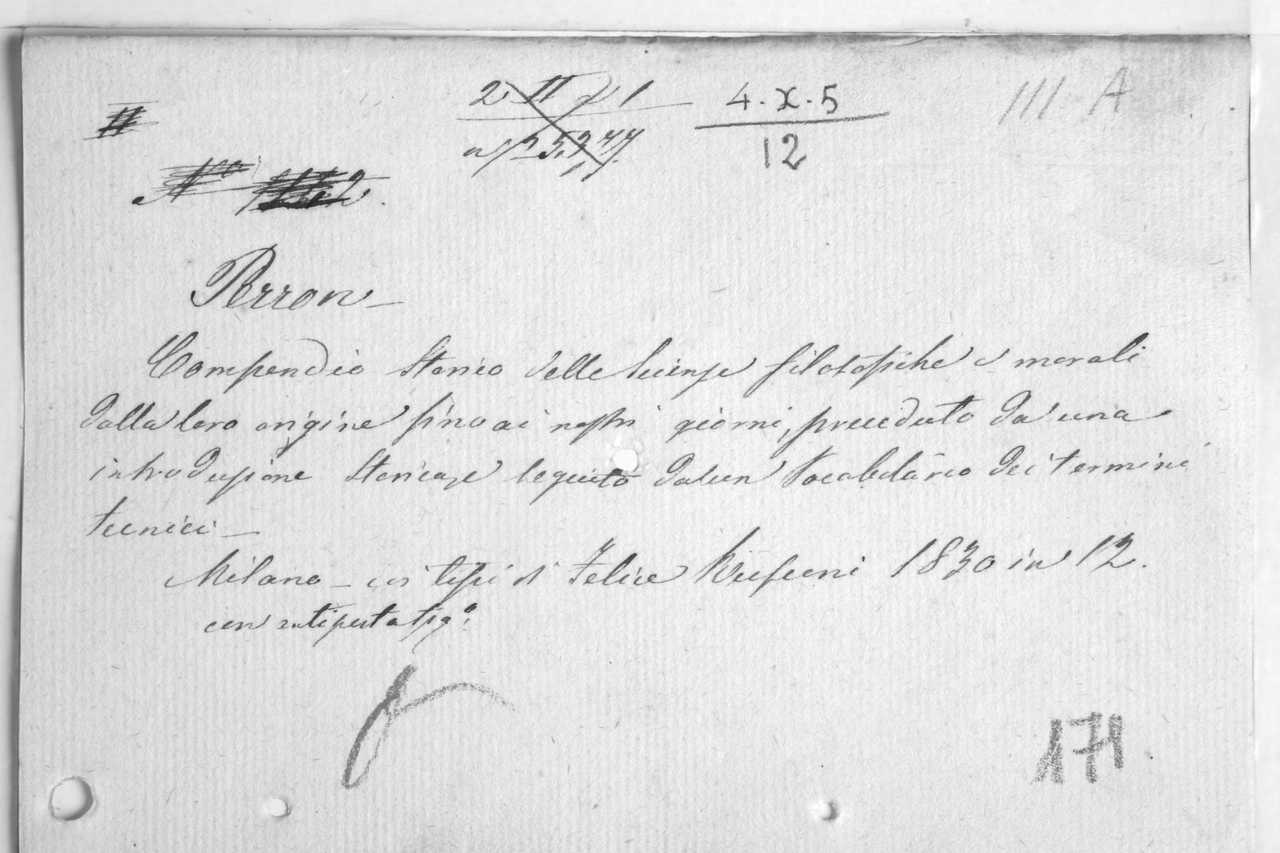 2 II f 1
4. X. 5
12
III A
N.o
Perron
Compendio Storico delle Scienze filosofiche e morali
dalla loro origine fino ai nostri giorni, preceduto da una
introduzione Storica, e seguito da un Vocabolario dei termini
tecnici —
Milano — coi tipi di Felice Rusconi 1830 in 12.
con antiporta fig.a
171